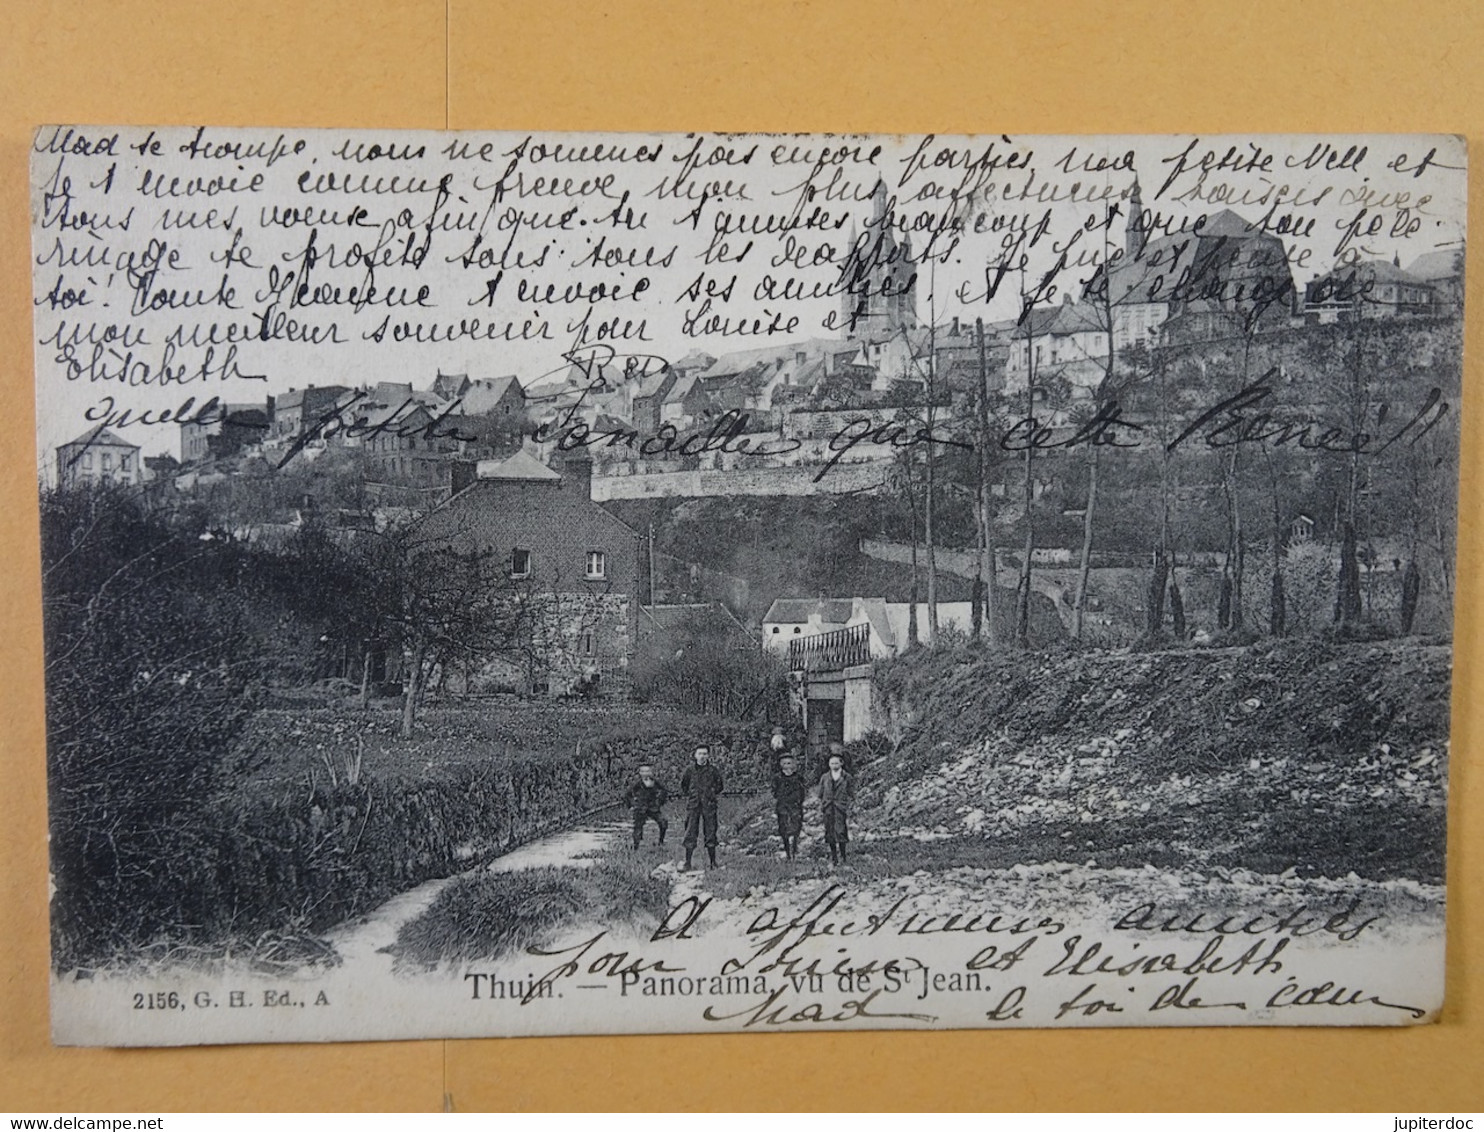 Mad se trompe, nous ne sommes pas encore parties, ma petite Nell et
je t'envoie comme preuve mon plus affectueux avec
tous mes voeux afin que tu t'amuses beaucoup et que ton pélé-
rinage te profite sous tous les rapports. Je et pense à
toi! Tante t'envoie ses amitiés, et je te charge de
mon meilleur souvenir pour Louise et
Elisabeth
quelle petite canaille que cette Renée!!
d'affectueuses amitiés
pour Louise et Elisabeth
Thuin. — Panorama, vu de St Jean.
2156, G. H. Ed., A
Mad le toi de coeur
jupiterdoc